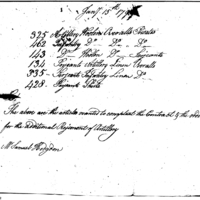 Jany 15th 1799
525 Artillery Woolen Overalls Privates
162 Infantry Do Do Do
143 Do Woolen Do Sergeants
134 Sergeants Artillery Linen Overalls
335 Sergeants Infantry Linen Do
428 Shirts
The above are the articles wanted to compleat the Contract & the order
for the additional Regiments of Artillery
Mr Samuel Hodgdon